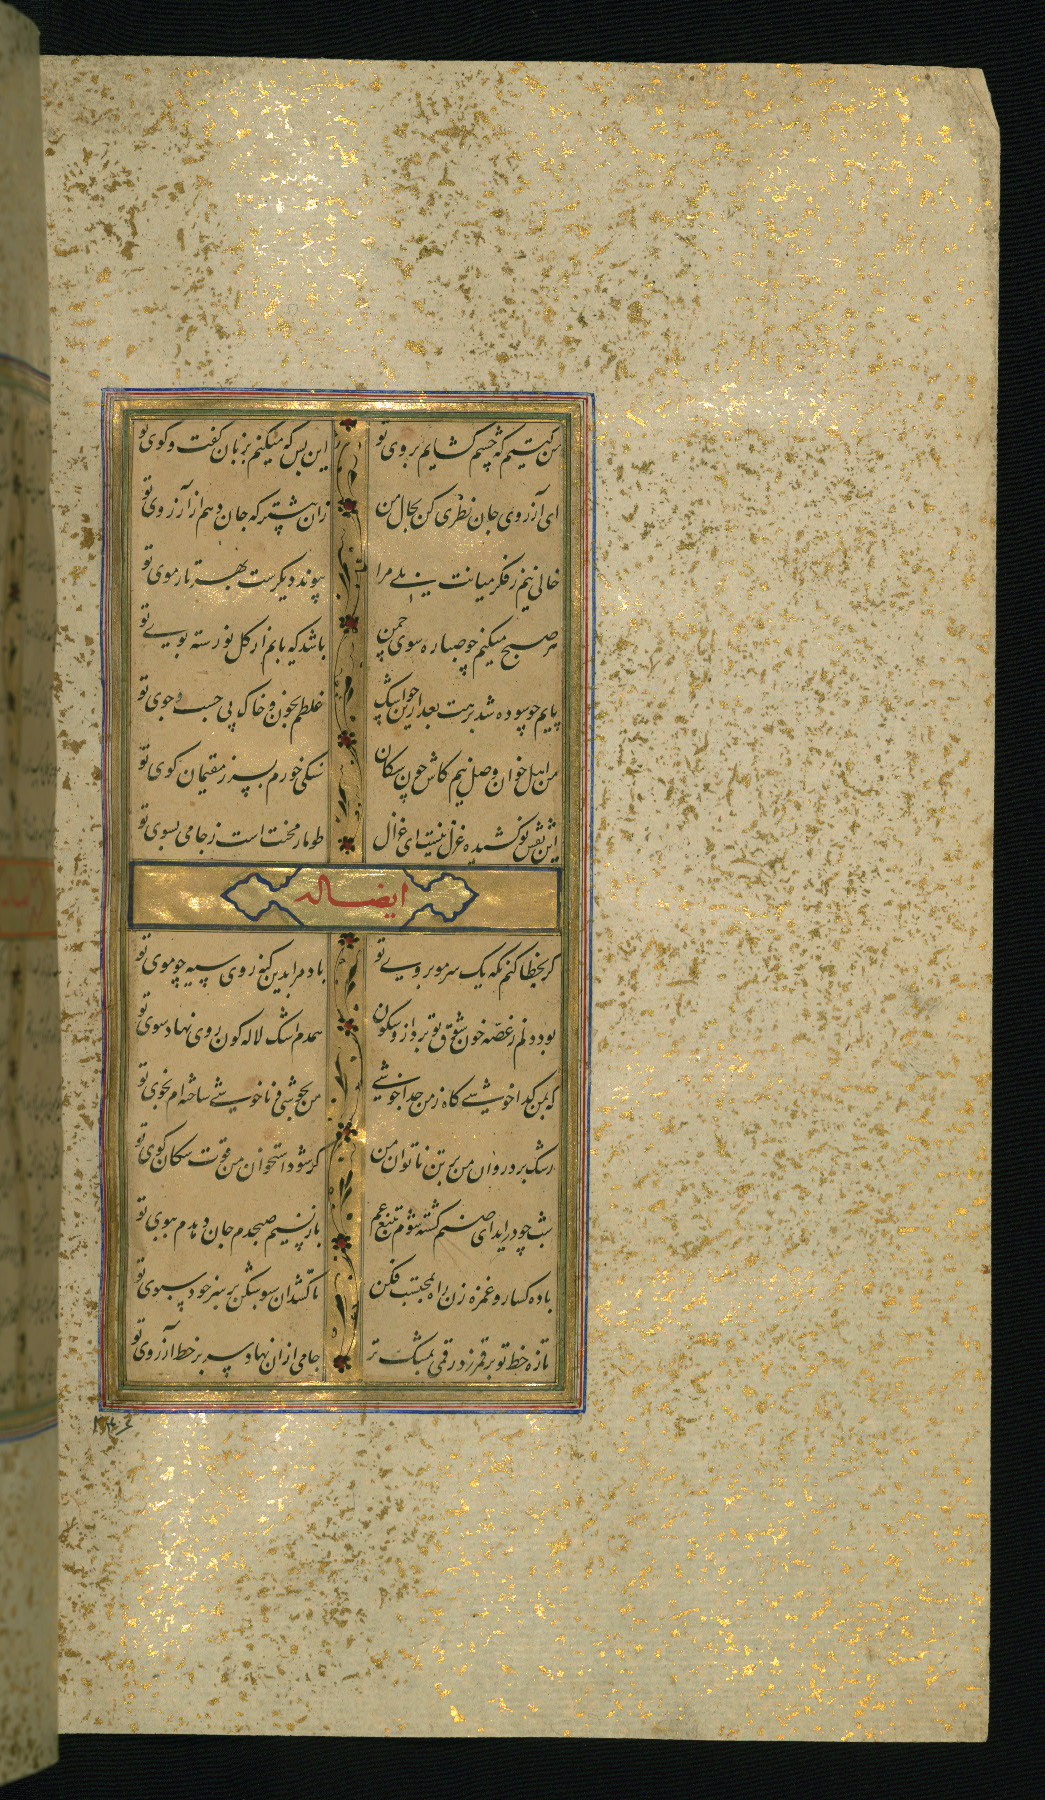 من کیستم که چشم کشایم بروی تو
این بس که میکنم بزبان کفت و کوی تو
ای آرزوی جان نظری کن بحال من
زان پیشتر که جان دهم از آرزوی تو
خالی نیم ز فکر میانت بلی مرا
پیوند دیکرست بهر تار موی تو
هر صبح میکنم چو صبا ره سوی چمن
باشد که یابم از کل نورسته بوی تو
پایم چو سوده شد برهت بعد ازین چو اشک
غلطم بخون و خاک پی جست و جوی تو
من اهل خوان وصل نیم کاش چون سکان
سنکی خورم بسر ز مقیمان کوی تو
این نقش نو کشیده غزل نیست ای غزال
طومار محنت است ز جامی بسوی تو
ایضا له
کر بخطا کنم نکه یک سر مو بروی تو
باد مرا بدین کنه روی سیه چو موی تو
بود دلم ز غصه خون شوق تو برد ازو سکون
همدم اشک لاله کون روی نهاد سوی تو
که بمن کدا خوشی کاه ز من جدا خوشی
من بخوشی و ناخوشی ساخته‌ام بخوی تو
رشک برد روان من بر تن ناتوان من
کر شود استخوان من قوت سکان کوی تو
شب چو در اید ای صنم کشته شوم بتیغ غم
باز نسیم صبحدم جان دهدم ببوی تو
باده کسار و غمزه زن راه محتسب فکن
تا کشد ان سبو شکن بر سر خود سبوی تو
تازه خط تو بر قمر زد رقمی بمشک تر
جامی ازان نهاد سر بر خط آرزوی تو